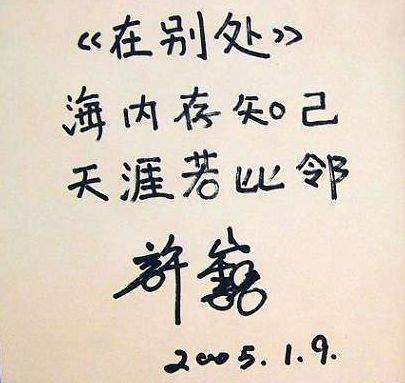 《在别处》
海内存知己
天涯若比邻
許巍
2005.1.9.